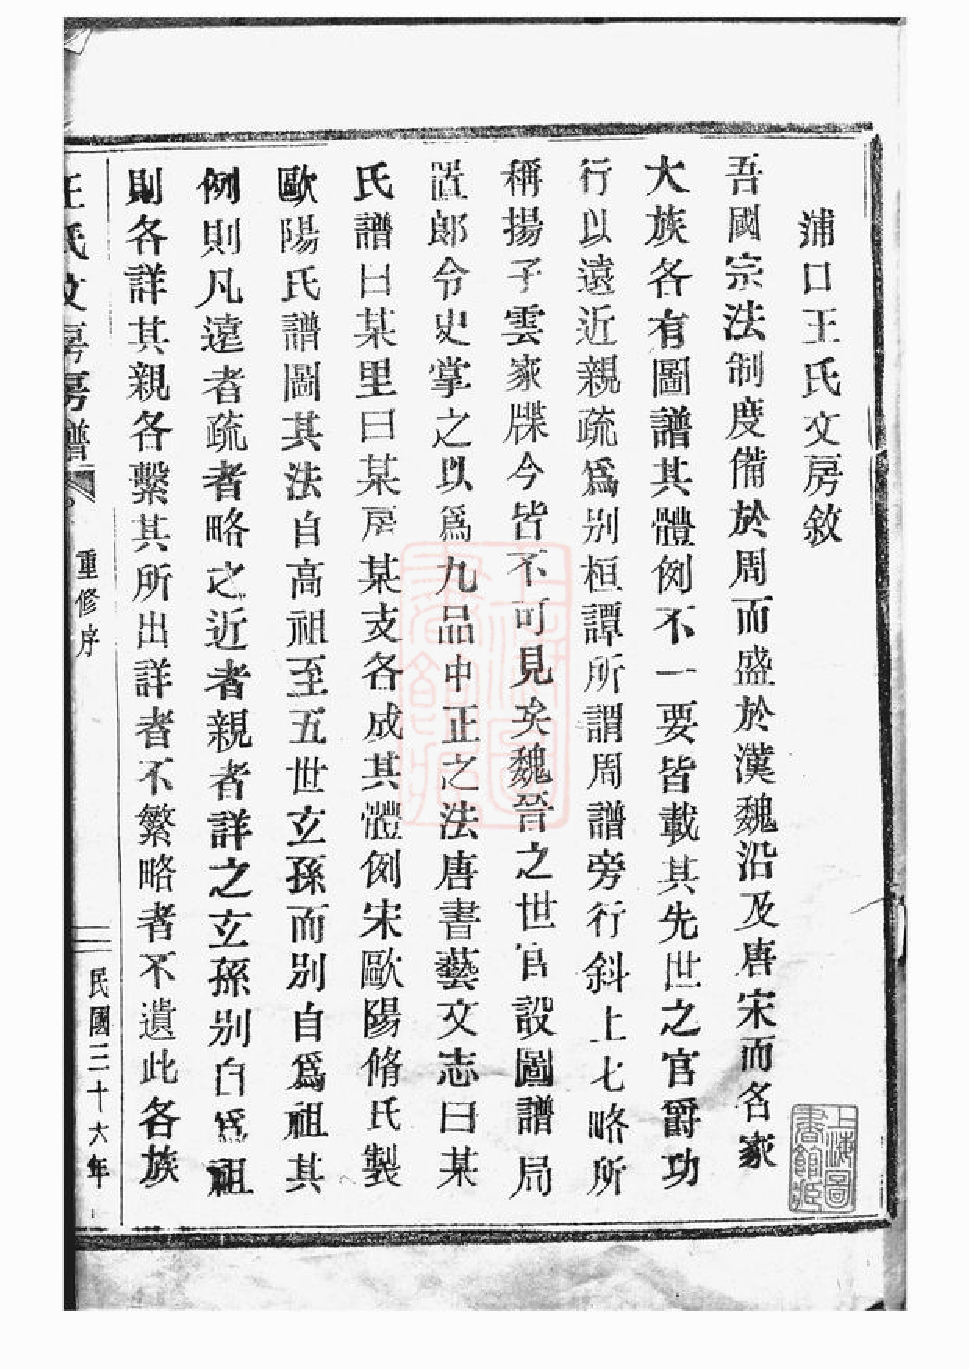 浦口王氏文房敘
吾國宗法制度備於周而盛於漢魏沿及唐宋而名家
大族各有圖譜其體例不一要皆載其先世之官爵功
行以遠近親疏爲別桓譚所謂周譜旁行斜上七略所
稱揚子雲家牒今皆不可見矣魏晉之世官設圖譜局
置郎令史掌之以爲九品中正之法唐書藝文志曰某
氏譜曰某里曰某房某支各成其體例宋歐陽脩氏製
歐陽氏譜圖其法自高祖至五世玄孫而別自爲祖其
例則凡遠者疏者略之近者親者詳之玄孫別自爲祖
則各詳其親各繫其所出詳者不繁略者不遺此各族
王氏文房房譜
重修序
民國三十六年
上海圖書館藏
上海圖書館藏